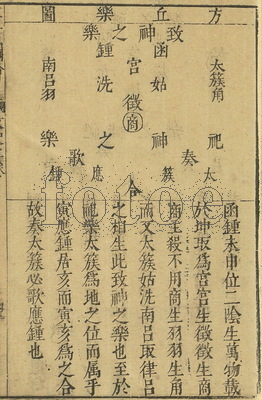 方丘樂圖
致神之樂
函鍾宮
太簇角
姑洗徵
南呂羽
商
祀神之樂
奏太簇
歌應鍾
合
函鍾未申位二陰生萬物載
於坤取爲宮宮生徵徵生商
商主殺不用商生羽羽生角
而又太簇姑洗南呂取律呂
之相生此致神之樂也至於
祀樂太簇爲地之位而屬乎
寅應鍾居亥而寅亥爲之合
故奏太簇必歌應鍾也
totoe